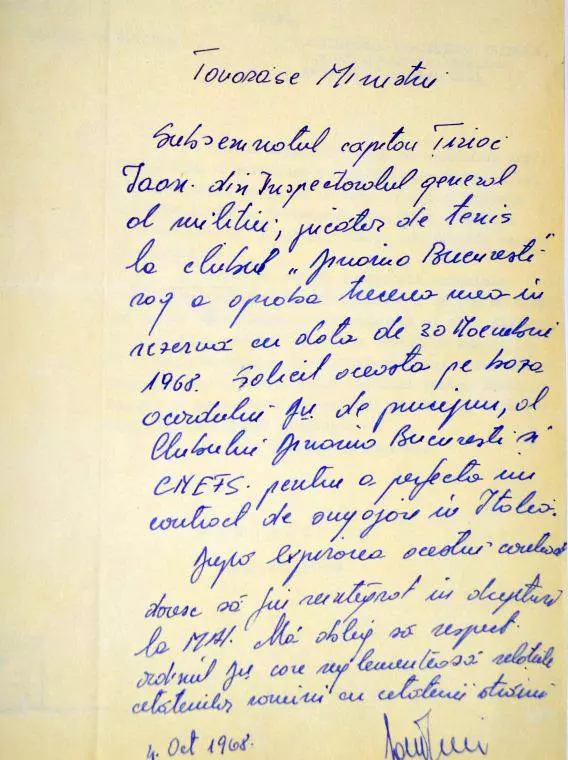 Tovarășe Ministru
Subsemnatul capitan Țiriac
Ioan. din Inspectoratul general
al militiei, jucător de tenis
la clubul „Dinamo București"
rog a aproba trecerea mea in
rezervă cu data de 30 Noembrie
1968. Solicit aceasta pe baza
acordului Dv. de principiu, al
Clubului Dinamo București si
CNEFS. pentru a perfecta un
contract de angajare in Italia.
După expirarea acestui contract
doresc să fiu reintegrat in drepturi
la MAI. Mă oblig să respect
ordinul Dv care reglementează relatiile
cetatenilor romini cu cetatenii străini
4. Oct 1968.